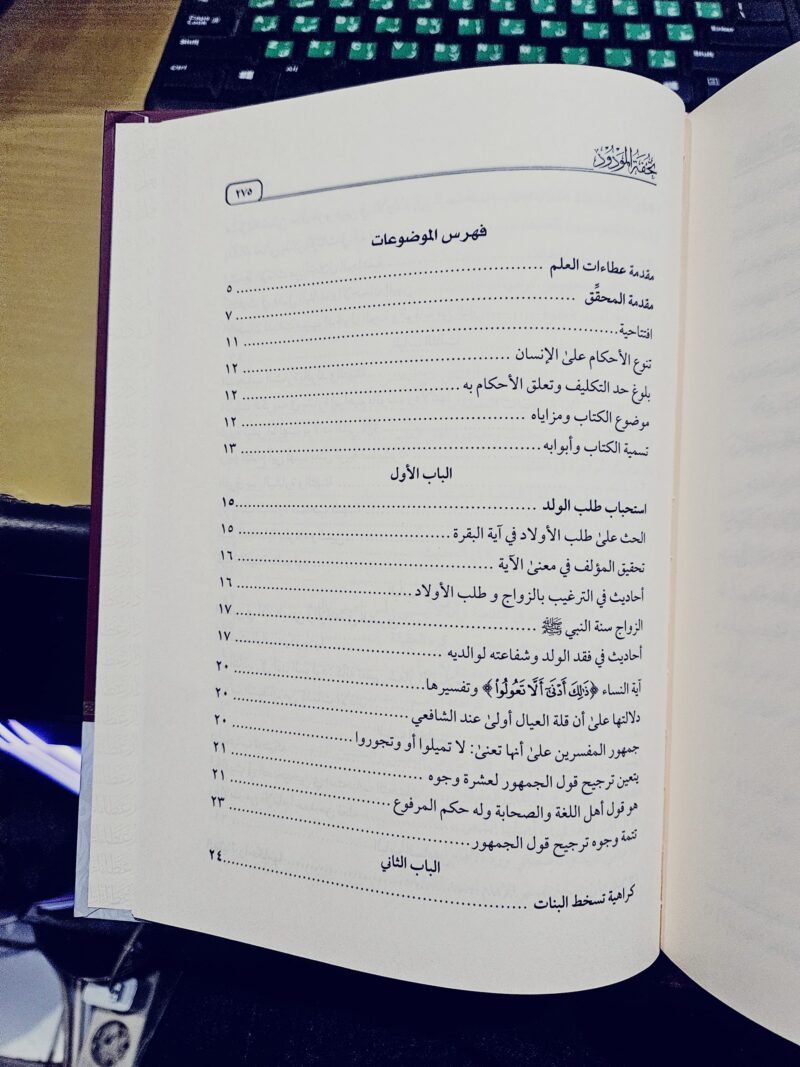 تحفة المودود
٢٧٥
فهرس الموضوعات
مقدمة عطاءات العلم ٥
مقدمة المحقِّق ٧
افتتاحية ١١
تنوع الأحكام علىٰ الإنسان ١٢
بلوغ حد التكليف وتعلق الأحكام به ١٢
موضوع الكتاب ومزاياه ١٢
تسمية الكتاب وأبوابه ١٣
الباب الأول
استحباب طلب الولد ١٥
الحث علىٰ طلب الأولاد في آية البقرة ١٥
تحقيق المؤلف في معنىٰ الآية ١٦
أحاديث في الترغيب بالزواج و طلب الأولاد ١٦
الزواج سنة النبي ﷺ ١٧
أحاديث في فقد الولد وشفاعته لوالديه ١٧
آية النساء ﴿ذَٰلِكَ أَدْنَىٰٓ أَلَّا تَعُولُوا۟﴾ وتفسيرها ٢٠
دلالتها علىٰ أن قلة العيال أولىٰ عند الشافعي ٢٠
جمهور المفسرين علىٰ أنها تعنىٰ: لا تميلوا أو وتجوروا ٢٠
يتعين ترجيح قول الجمهور لعشرة وجوه ٢١
هو قول أهل اللغة والصحابة وله حكم المرفوع ٢١
تتمة وجوه ترجيح قول الجمهور ٢٣
الباب الثاني
كراهية تسخط البنات ٢٤